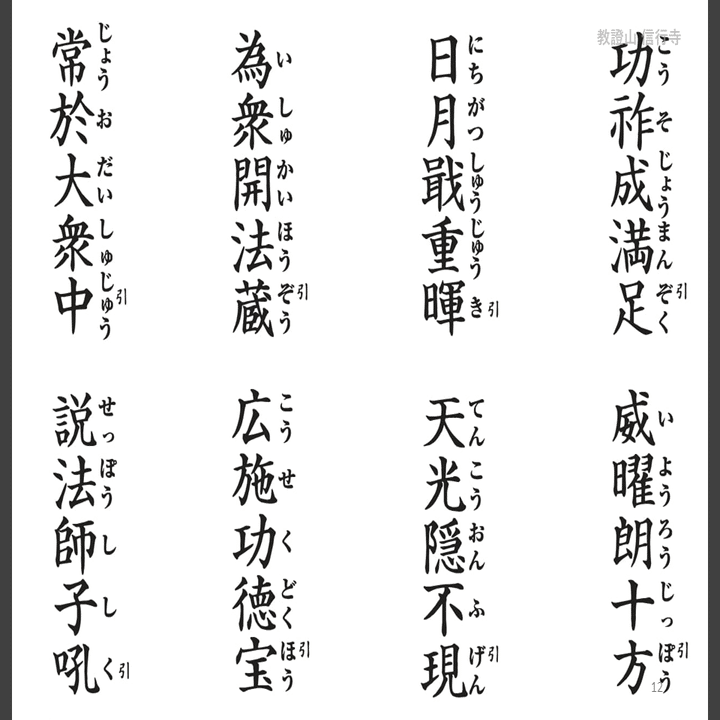 教證山 信行寺
功祚成満足
こうそじょうまんぞく引
威曜朗十方
いようろうじっぽう引
日月戢重暉
にちがつしゅうじゅうき引
天光隠不現
てんこうおんふげん引
為衆開法蔵
いしゅかいほうぞう引
広施功徳宝
こうせくどくほう引
常於大衆中
じょうおだいしゅじゅう引
説法師子吼
せっぽうししく引
12